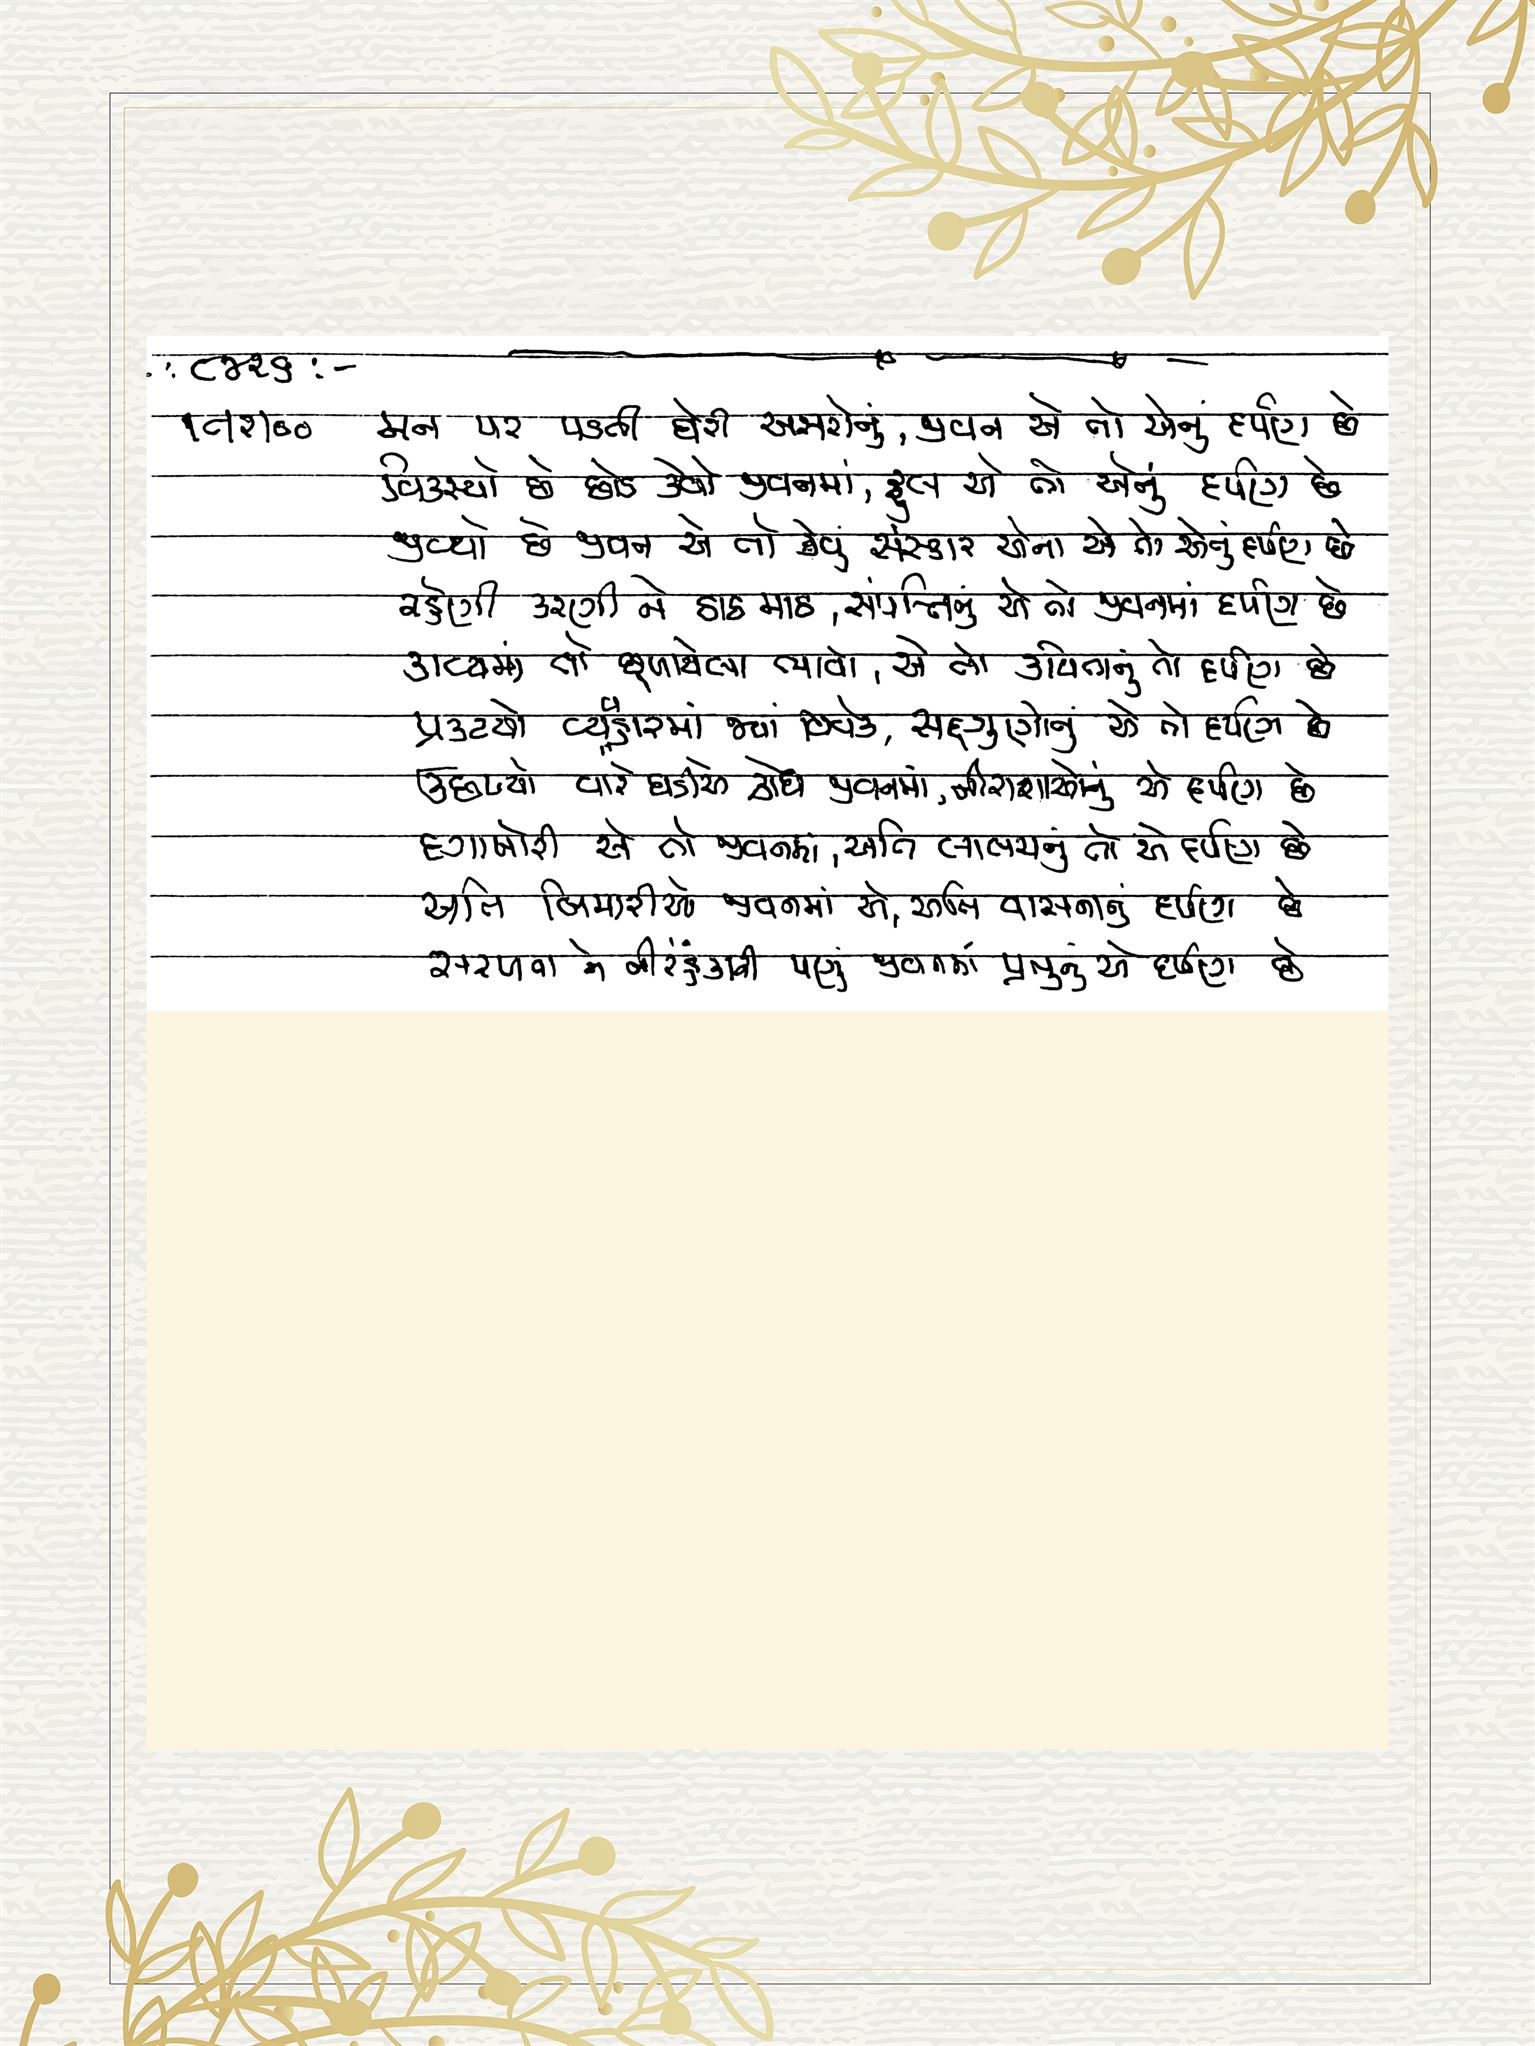 :: ૮૪૨૬ :-
૧૧૨।૦૦ મન પર પડતી ઘેરી અસરોનું, જીવન એ તો એનું દર્પણ છે
વિકસ્યો છે છોડ કેવો જીવનમાં, ફુલ એ તો એનું દર્પણ છે
જીવ્યો છે જીવન એ તો કેવું સંસ્કાર એના એ તો એનું દર્પણ છે
રહેણી કરણી ને ઠાઠ માઠ, સંપત્તિનું એ તો જીવનમાં દર્પણ છે
કાવ્યમાં તો ઘૂળાયેલા ભાવો, એ તો કવિતાનું તો દર્પણ છે
પ્રકટયો વ્યવહારમાં જ્યાં વિવેક, સદ્ગુણોનું એ તો દર્પણ છે
ઉછળ્યો વારે ઘડીએ ક્રોધ જીવનમાં, નીરાશાઓનું એ દર્પણ છે
દગાખોરી એ તો જીવનમાં, અતિ લાલચનું તો એ દર્પણ છે
અતિ બિમારીઓ જીવનમાં એ, અતિ વાસનાનું દર્પણ છે
સરળતા ને નીરહંકારી પણું જીવનમાં પ્રભુનું એ દર્પણ છે